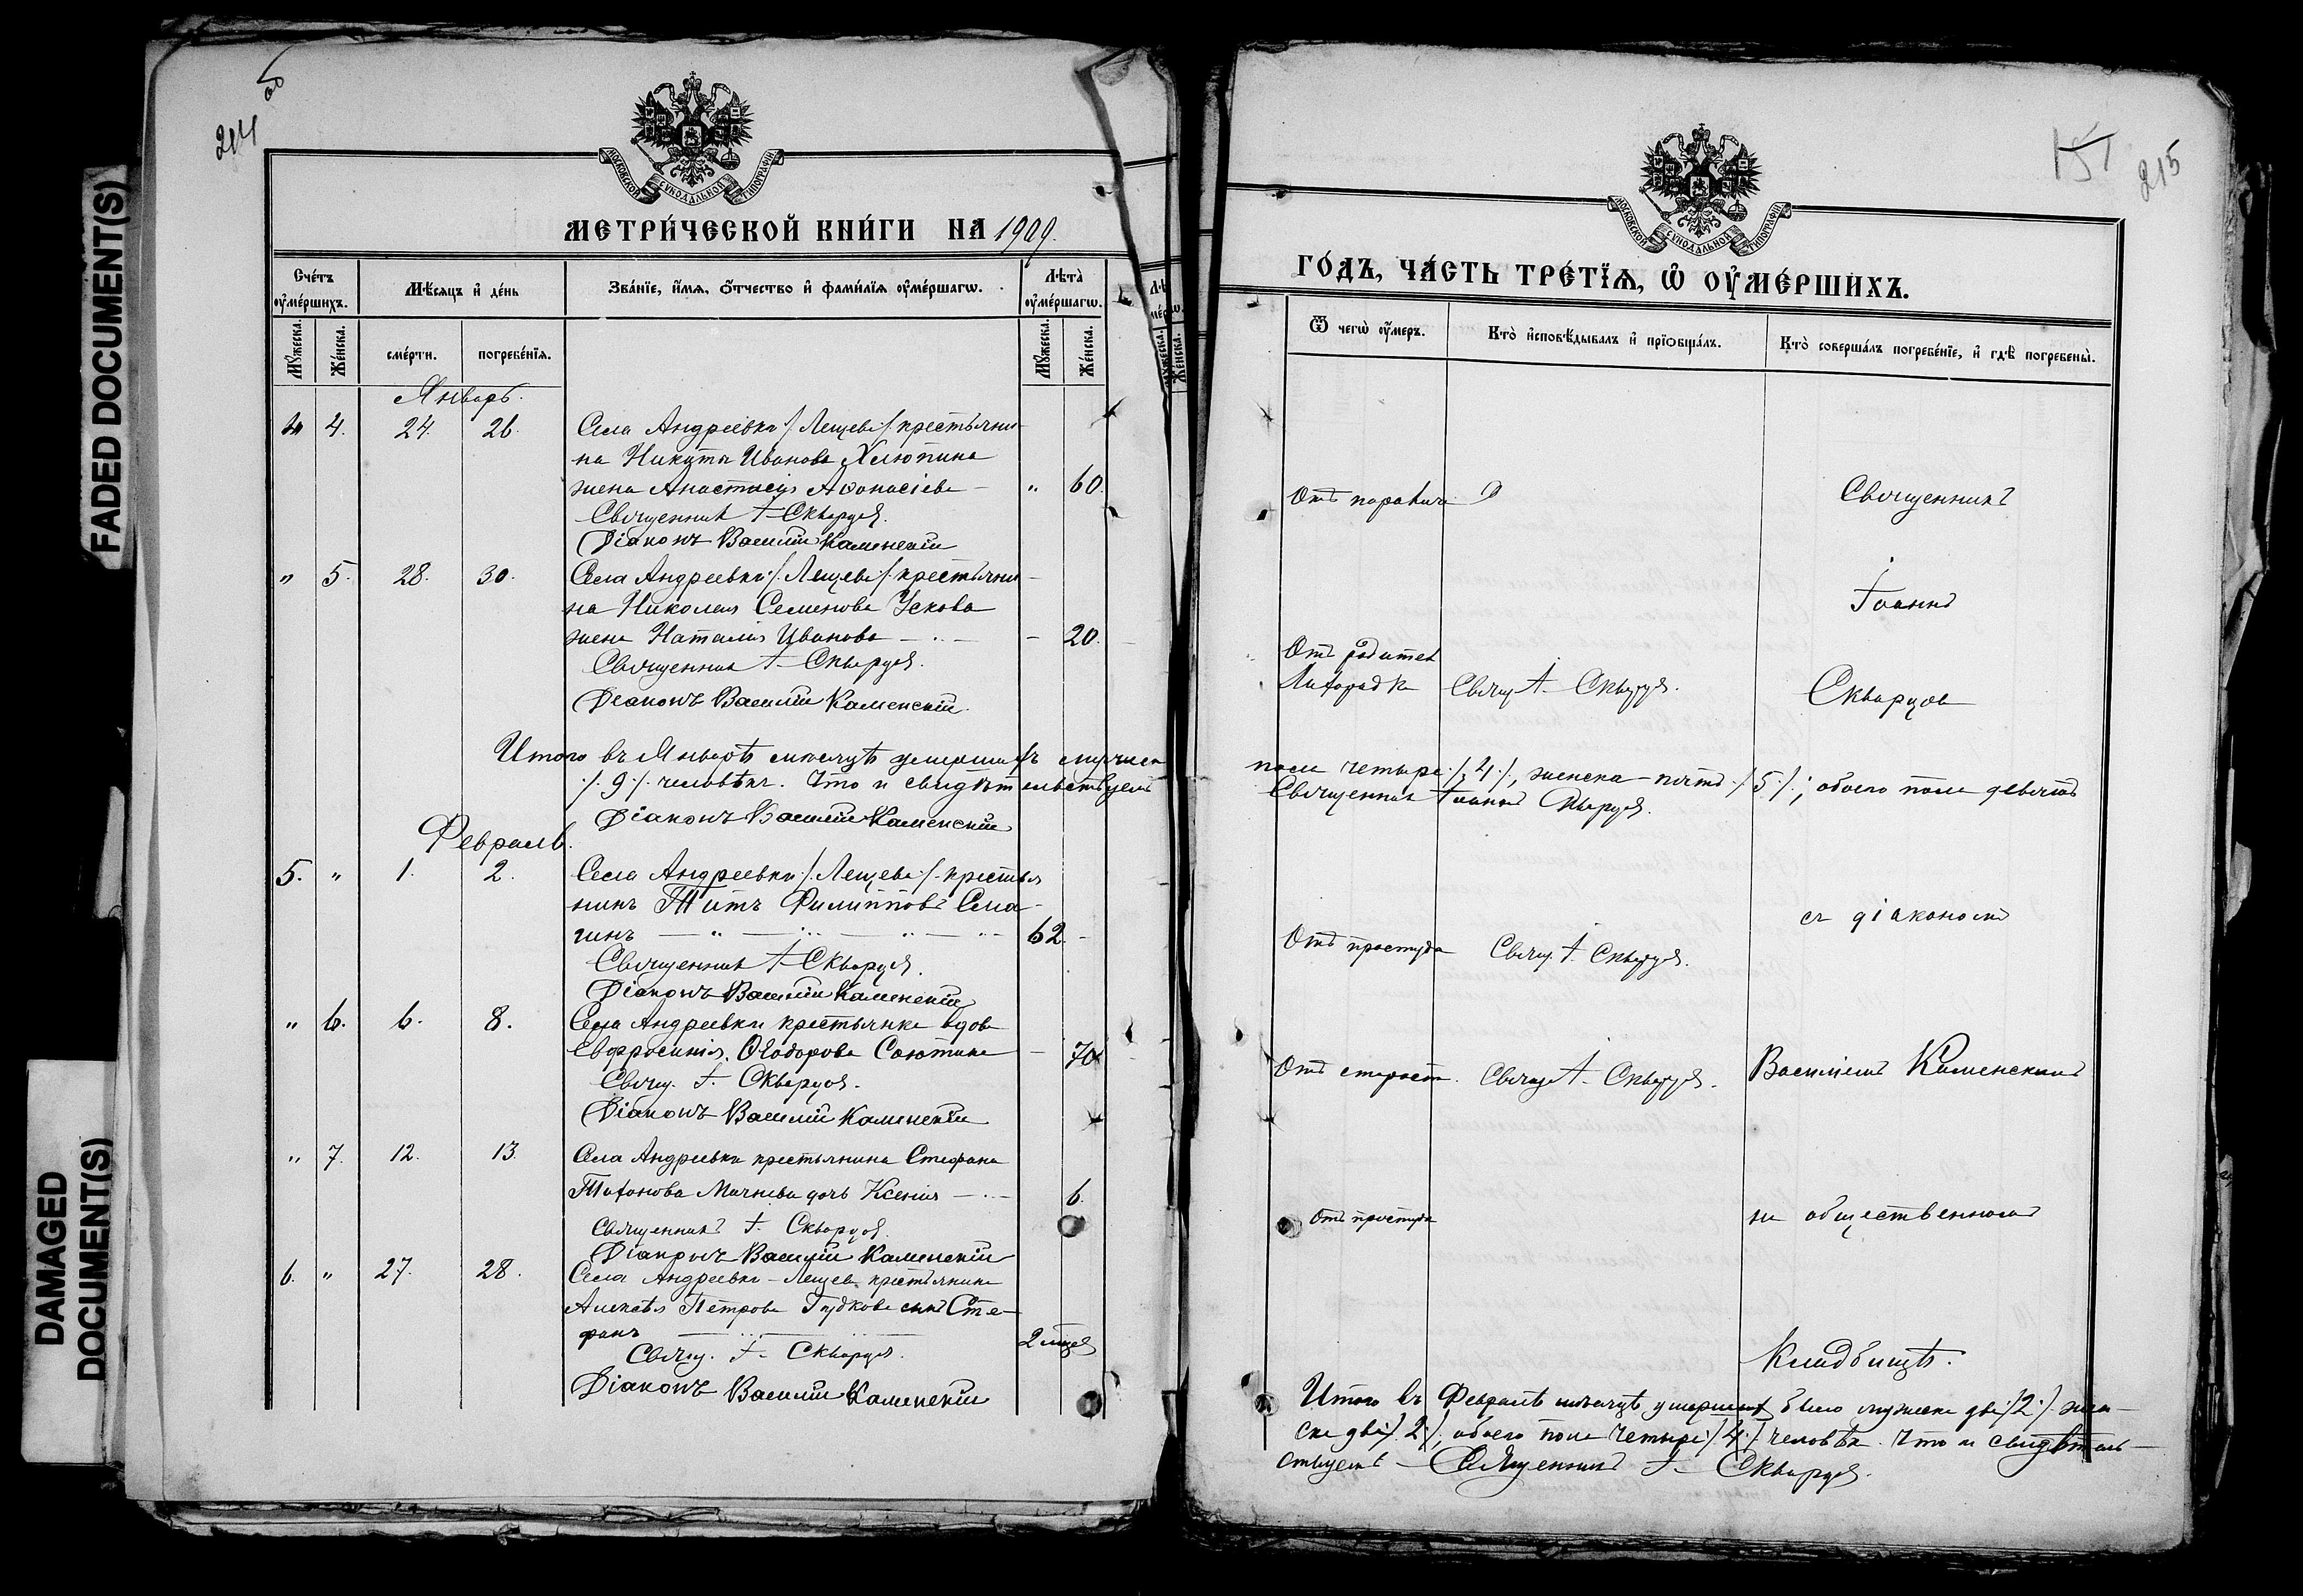 FADED DOCUMENT(S)
DAMAGED
DOCUMENT(S)
214
об
МОСКОВСКОЙ СѴНОДАЛЬНОЙ ТИПОГРАФІИ
МЕТРИ́ЧЕСКОЙ КНИ́ГИ НА 1909.
Сче́тъ
оу҆ме́ршихъ.
Мѣ́сяцъ и҆ де́нь
Зва́нїе, и҆́мѧ, ѻ҆́тчество и҆ фами́лїѧ оу҆ме́ршагѡ.
Лѣта̀
оу҆ме́ршагѡ.
Мꙋ́жеска.
Же́нска.
сме́рти.
погребе́нїѧ.
Мꙋ́жеска.
Же́нска.
Январь.
4. 24. 26. Села Андреевки /Лещева/ крестьяни-
на Никиты Иванова Хлюпина
жена Анастасія Аѳонасіева — „ 60.
Священник І. Скварцов.
Діаконъ Василій Каменскій
„ 5. 28. 30. Села Андреевки /Лещева/ крестьяни-
на Николая Семенова Ускова
жена Наталія Иванова — - 20.
Священник І. Скварцов.
Діаконъ Василій Каменскій.
Итого въ Январѣ мѣсяцѣ умершихъ мужска
/.9./ человѣк. Что и свидѣтельствуемъ
Діаконъ Василій Каменскій
Февраль.
5. „ 1. 2. Села Андреевки /Лещева/ крестья
нинъ Титъ Филипповъ Сема-
гинъ 62. -
Священник І. Скварцов.
Діаконъ Василій Каменскій
„ 6. 6. 8. Села Андреевки крестьянка вдова
Евфросинія Ѳеодорова - 70
Свящ. І. Скварцов.
Діаконъ Василій Каменскій
„ 7. 12. 13. Села Андреевки крестьянина Стефана
дочь Ксенія 6.
Священникъ І. Скварцов.
Діаконъ Василій Каменскій
6. „ 27. 28. Села Андреевки - Лещева крестьянина
Алексѣя Петрова Гудкова сынъ Сте-
фанъ 2 мѣс.
Свящ. І. Скварцов.
Діаконъ Василій Каменскій
151
215
МОСКОВСКОЙ СѴНОДАЛЬНОЙ ТИПОГРАФІИ
ГО́ДЪ, ЧА́СТЬ ТРЕ́ТЇѦ, Ѡ҆ ОУ҆МЕ́РШИХЪ.
Ѿ чегѡ̀ оу҆́меръ.
Кто̀ и҆сповѣ́дывалъ и҆ прїѻбща́лъ.
Кто̀ соверша́лъ погребе́нїе, и҆ гдѣ̀ погребены̀.
Отъ паралича
Священникъ
Іоаннъ
Отъ родител
Лихорадки
Свящ. І. Скварцов.
Скварцов
пола четыре /.4./, женска - пять /.5./, обоего пола девять
Священник Іоаннъ Скварцов.
Отъ простуды Свящ. І. Скварцов.
съ діакономъ
Отъ старости. Свящ. І. Скварцов.
Василіемъ Каменскимъ
Отъ простуды
на общественномъ
Кладбищѣ.
Итого въ Февралѣ мѣсяцѣ умершихъ было мужска два /.2./ жен-
ска два /.2./, обоего пола четыре /.4./ человѣка. Что и свидѣтель-
ствуемъ — Священникъ І. Скварцов.